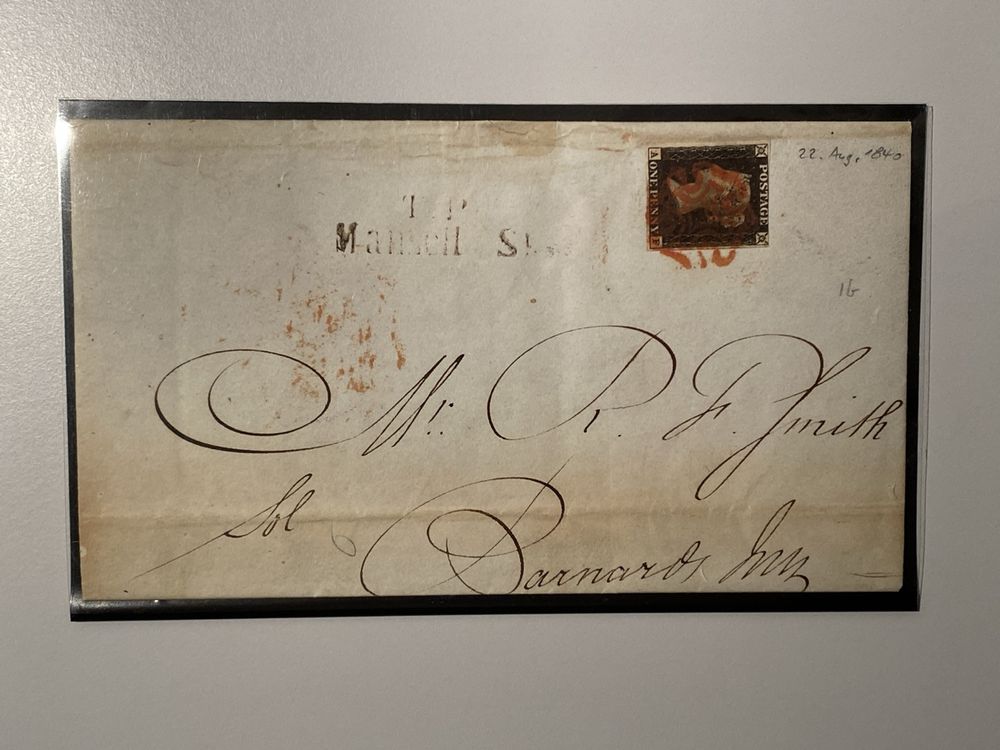 T.P
Mansell St.
POSTAGE
A ONE PENNY F
22. Aug. 1840
1b
Mr. R. F. Smith
Sol
6
Barnards Inn